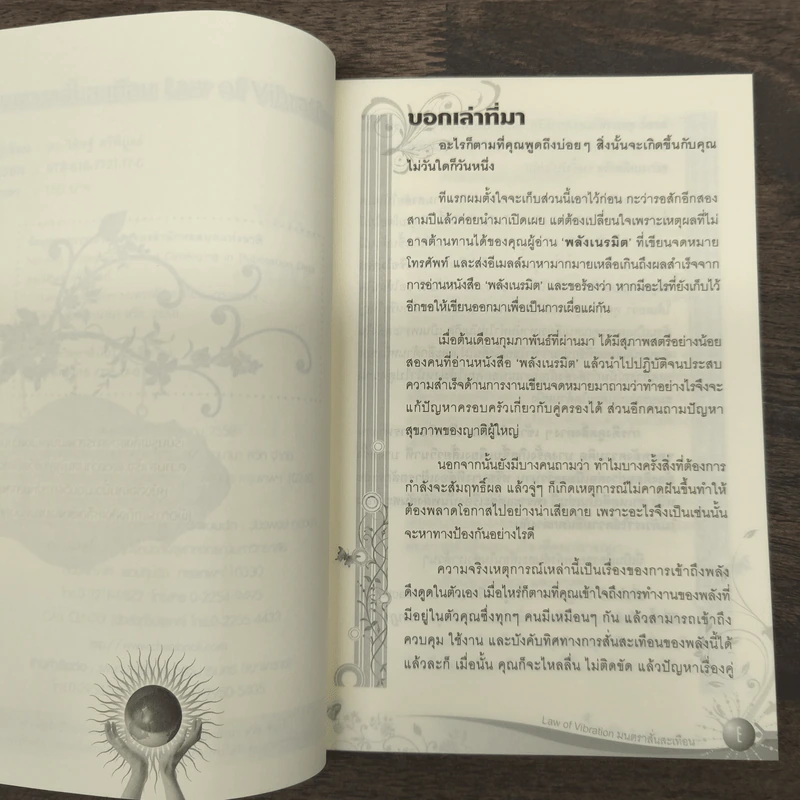 บอกเล่าที่มา
อะไรก็ตามที่คุณพูดถึงบ่อยๆ สิ่งนั้นจะเกิดขึ้นกับคุณ
ไม่วันใดก็วันหนึ่ง
ทีแรกผมตั้งใจจะเก็บส่วนนี้เอาไว้ก่อน กะว่ารอสักอีกสอง
สามปีแล้วค่อยนำมาเปิดเผย แต่ต้องเปลี่ยนใจเพราะเหตุผลที่ไม่
อาจต้านทานได้ของคุณผู้อ่าน ‘พลังเนรมิต’ ที่เขียนจดหมาย
โทรศัพท์ และส่งอีเมลล์มาหามากมายเหลือเกินถึงผลสำเร็จจาก
การอ่านหนังสือ ‘พลังเนรมิต’ และขอร้องว่า หากมีอะไรที่ยังเก็บไว้
อีกขอให้เขียนออกมาเพื่อเป็นการเผื่อแผ่กัน
เมื่อต้นเดือนกุมภาพันธ์ที่ผ่านมา ได้มีสุภาพสตรีอย่างน้อย
สองคนที่อ่านหนังสือ ‘พลังเนรมิต’ แล้วนำไปปฏิบัติจนประสบ
ความสำเร็จด้านการงานเขียนจดหมายมาถามว่าทำอย่างไรจึงจะ
แก้ปัญหาครอบครัวเกี่ยวกับคู่ครองได้ ส่วนอีกคนถามปัญหา
สุขภาพของญาติผู้ใหญ่
นอกจากนั้นยังมีบางคนถามว่า ทำไมบางครั้งสิ่งที่ต้องการ
กำลังจะสัมฤทธิ์ผล แล้วจู่ๆ ก็เกิดเหตุการณ์ไม่คาดฝันขึ้นทำให้
ต้องพลาดโอกาสไปอย่างน่าเสียดาย เพราะอะไรจึงเป็นเช่นนั้น
จะหาทางป้องกันอย่างไรดี
ความจริงเหตุการณ์เหล่านี้เป็นเรื่องของการเข้าถึงพลัง
ดึงดูดในตัวเอง เมื่อไหร่ก็ตามที่คุณเข้าใจถึงการทำงานของพลังที่
มีอยู่ในตัวคุณซึ่งทุกๆ คนมีเหมือนๆ กัน แล้วสามารถเข้าถึง
ควบคุม ใช้งาน และบังคับทิศทางการสั่นสะเทือนของพลังนี้ได้
แล้วละก็ เมื่อนั้น คุณก็จะไหลลื่น ไม่ติดขัด แล้วปัญหาเรื่องคู่
Law of Vibration มนตราสั่นสะเทือน